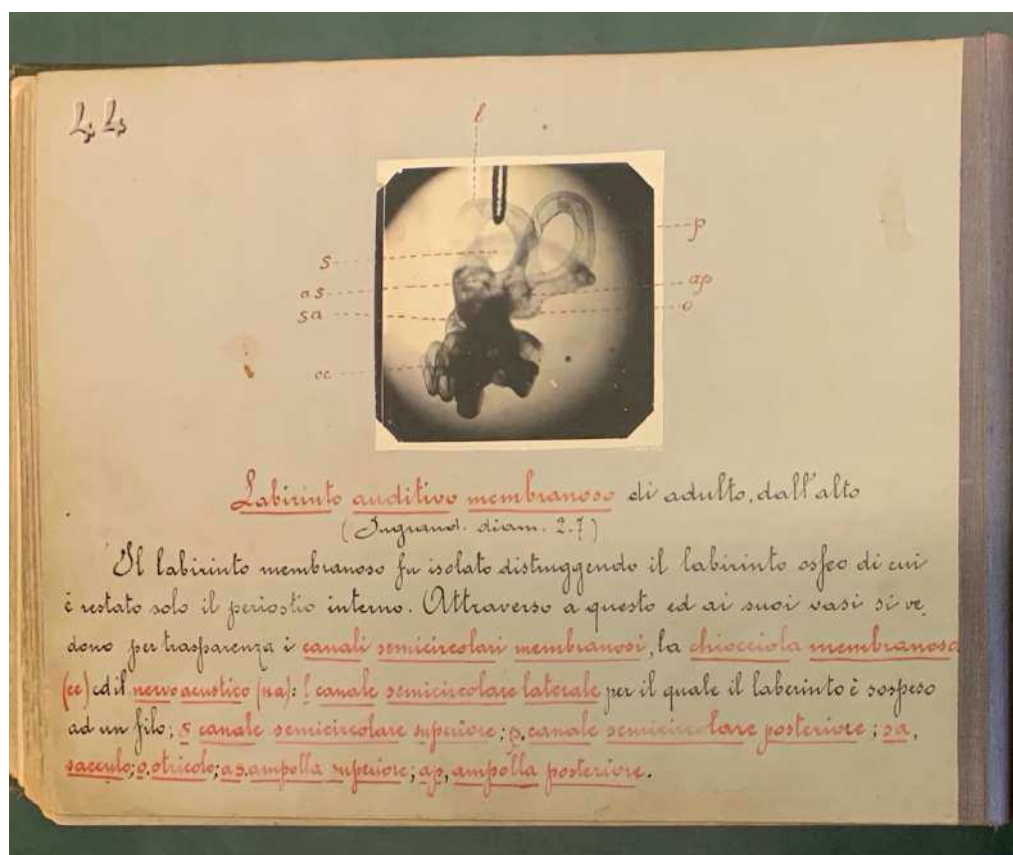 l
p
s
as
ap
sa
o
cc
Labirinto auditivo membranoso di adulto, dall'alto
(Ingrand. diam. 2.7)
Il labirinto membranoso fu isolato distruggendo il labirinto osseo di cui
è restato solo il periostio interno. Attraverso a questo ed ai suoi vasi si ve
dono per trasparenza i canali semicircolari membranosi, la chiocciola membranosa
(cc) ed il nervo acustico (na): l canale semicircolare laterale per il quale il laberinto è sospeso
ad un filo; s canale semicircolare superiore; p, canale semicircolare posteriore; sa,
sacculo; o, otricolo; as, ampolla superiore; ap, ampolla posteriore.